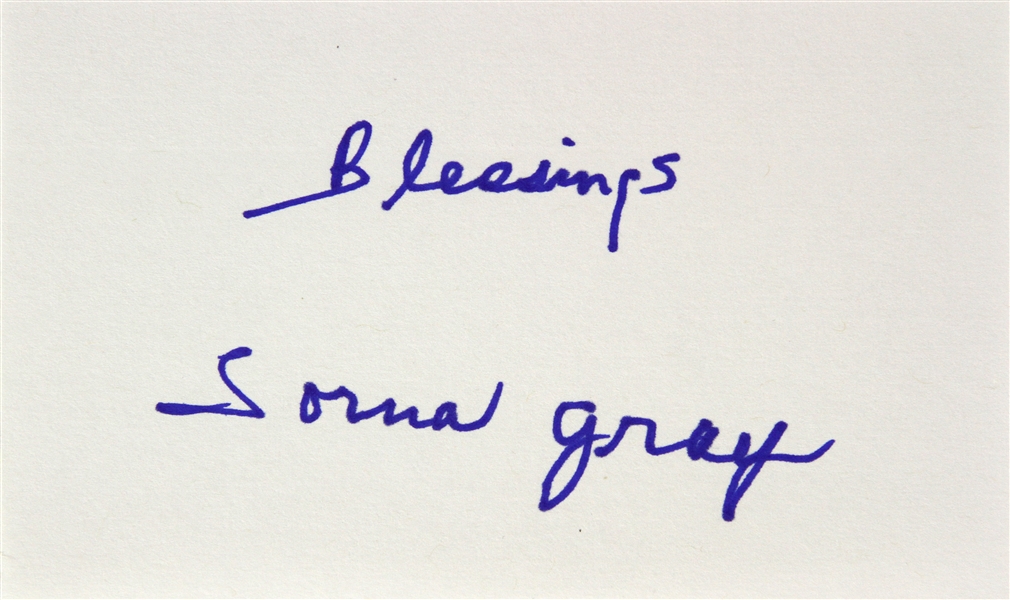 Blessings
Lorna Gray